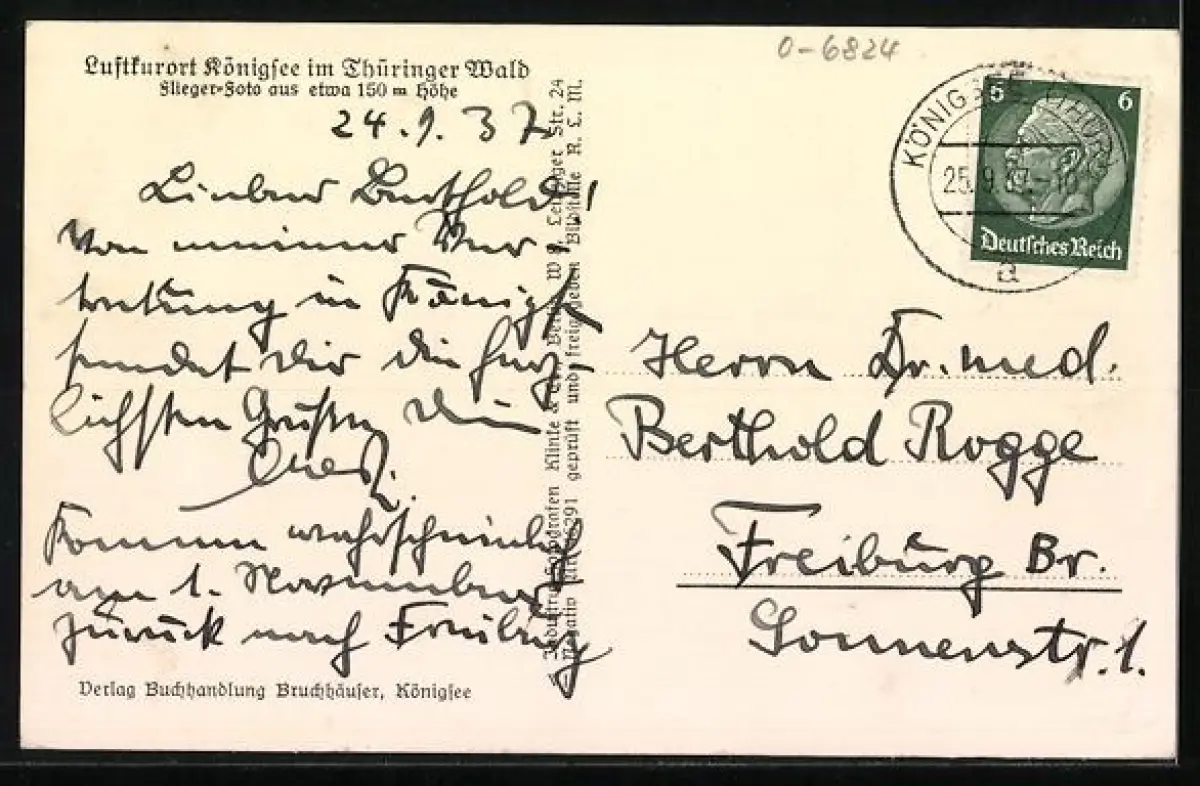 Luftkurort Königsee im Thüringer Wald
Flieger-Foto aus etwa 150 m Höhe
24.9.37
Lieber Berthold!
Von meiner Ver-
tretung in Königs.
sendet Dir die herz-
lichsten Grüße Dein
Komme wahrscheinlich
am 1. November
zurück nach Freiburg
Verlag Buchhandlung Bruchhäuser, Königsee
Industrie-Fotografen Klinke & Co., Berlin W 8, Leipziger Str. 24
geprüft und freigegeben Bildstelle R. L. M.
0-6824
KÖNIGSEE (THÜR)
25.9.37.-10
a
6 6
Deutsches Reich
Herrn Dr. med.
Berthold Rogge
Freiburg Br.
Sonnenstr. 1.